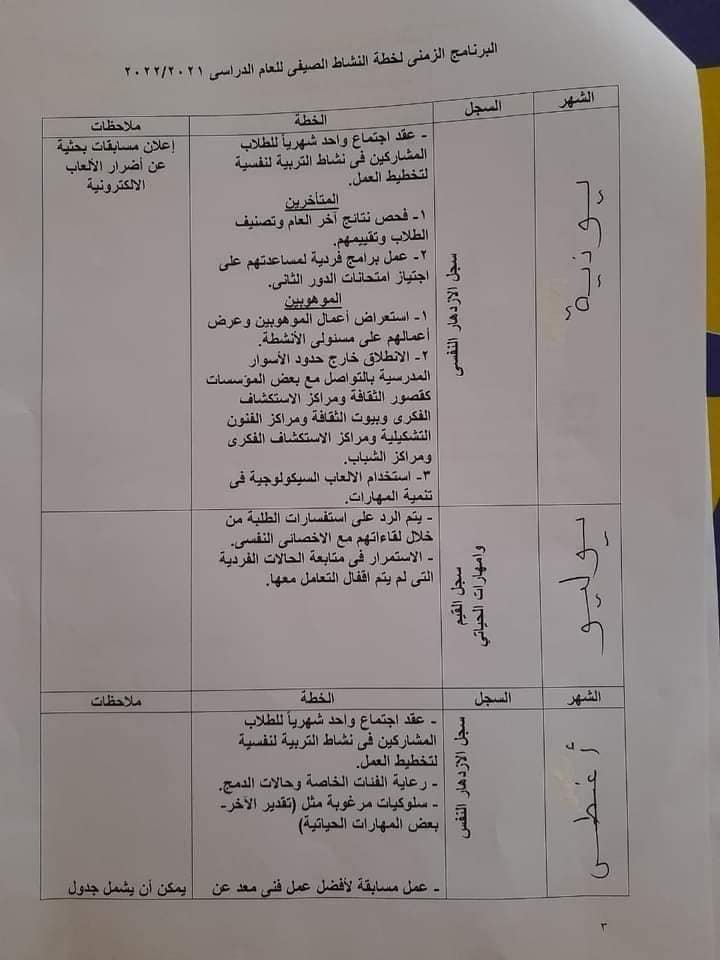 البرنامج الزمنى لخطة النشاط الصيفى للعام الدراسى ٢٠٢٢/٢٠٢١
الشهر السجل الخطة ملاحظات
يونية
سجل الازدهار النفسى
- عقد اجتماع واحد شهرياً للطلاب
المشاركين فى نشاط التربية لنفسية
لتخطيط العمل.
المتأخرين
١- فحص نتائج آخر العام وتصنيف
الطلاب وتقييمهم.
٢- عمل برامج فردية لمساعدتهم على
اجتياز امتحانات الدور الثانى.
الموهوبين
١- استعراض أعمال الموهوبين وعرض
أعمالهم على مسئولى الأنشطة.
٢- الانطلاق خارج حدود الأسوار
المدرسية بالتواصل مع بعض المؤسسات
كقصور الثقافة ومراكز الاستكشاف
الفكرى وبيوت الثقافة ومراكز الفنون
التشكيلية ومراكز الاستكشاف الفكرى
ومراكز الشباب.
٣- استخدام الالعاب السيكولوجية فى
تنمية المهارات.
إعلان مسابقات بحثية
عن أضرار الألعاب
الالكترونية
يوليو
سجل القيم
وامهارات الحياتي
- يتم الرد على استفسارات الطلبة من
خلال لقاءاتهم مع الاخصائى النفسى.
- الاستمرار فى متابعة الحالات الفردية
التى لم يتم اقفال التعامل معها.
الشهر السجل الخطة ملاحظات
أغسطس
سجل الازدهار النفس
- عقد اجتماع واحد شهرياً للطلاب
المشاركين فى نشاط التربية لنفسية
لتخطيط العمل.
- رعاية الفئات الخاصة وحالات الدمج.
- سلوكيات مرغوبة مثل (تقدير الآخر-
بعض المهارات الحياتية)
- عمل مسابقة لأفضل عمل فني معد عن
يمكن أن يشمل جدول
٣